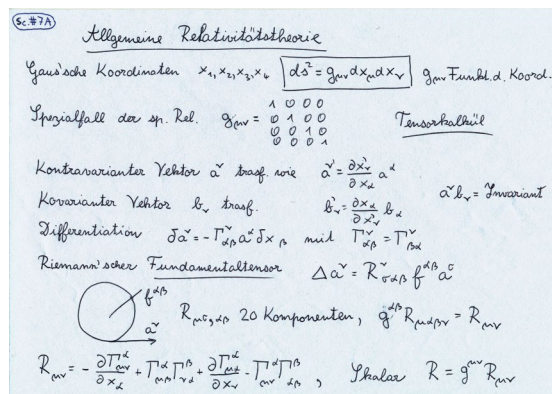 Sc.#7A
Allgemeine Relativitätstheorie
Gaus'sche Koordinaten x₁, x₂, x₃, x₄ ds² = g_μν dx_μ dx_ν g_μν Funkt. d. Koord.
Spezialfall der sp. Rel. g_μν = 1 0 0 0
0 1 0 0
0 0 1 0
0 0 0 1
Tensorkalkül
Kontravarianter Vektor a^ν trasf. wie a'^ν = ∂x'_ν/∂x_α a^α
a^ν b_ν = Invariant
Kovarianter Vektor b_ν trasf. b'_ν = ∂x_α/∂x'_ν b_α
Differentiation δa^ν = -Γ^ν_αβ a^α δx_β mit Γ^ν_αβ = Γ^ν_βα
Riemann'scher Fundamentaltensor Δa^ν = R^ν_σαβ f^αβ a^σ
f^αβ
a^ν
R_μσ,αβ 20 Komponenten, g^αβ R_μαβν = R_μν
R_μν = - ∂Γ^α_μν/∂x_α + Γ^α_μβ Γ^β_να + ∂Γ^α_μα/∂x_ν - Γ^α_μν Γ^β_αβ , Skalar R = g^μν R_μν